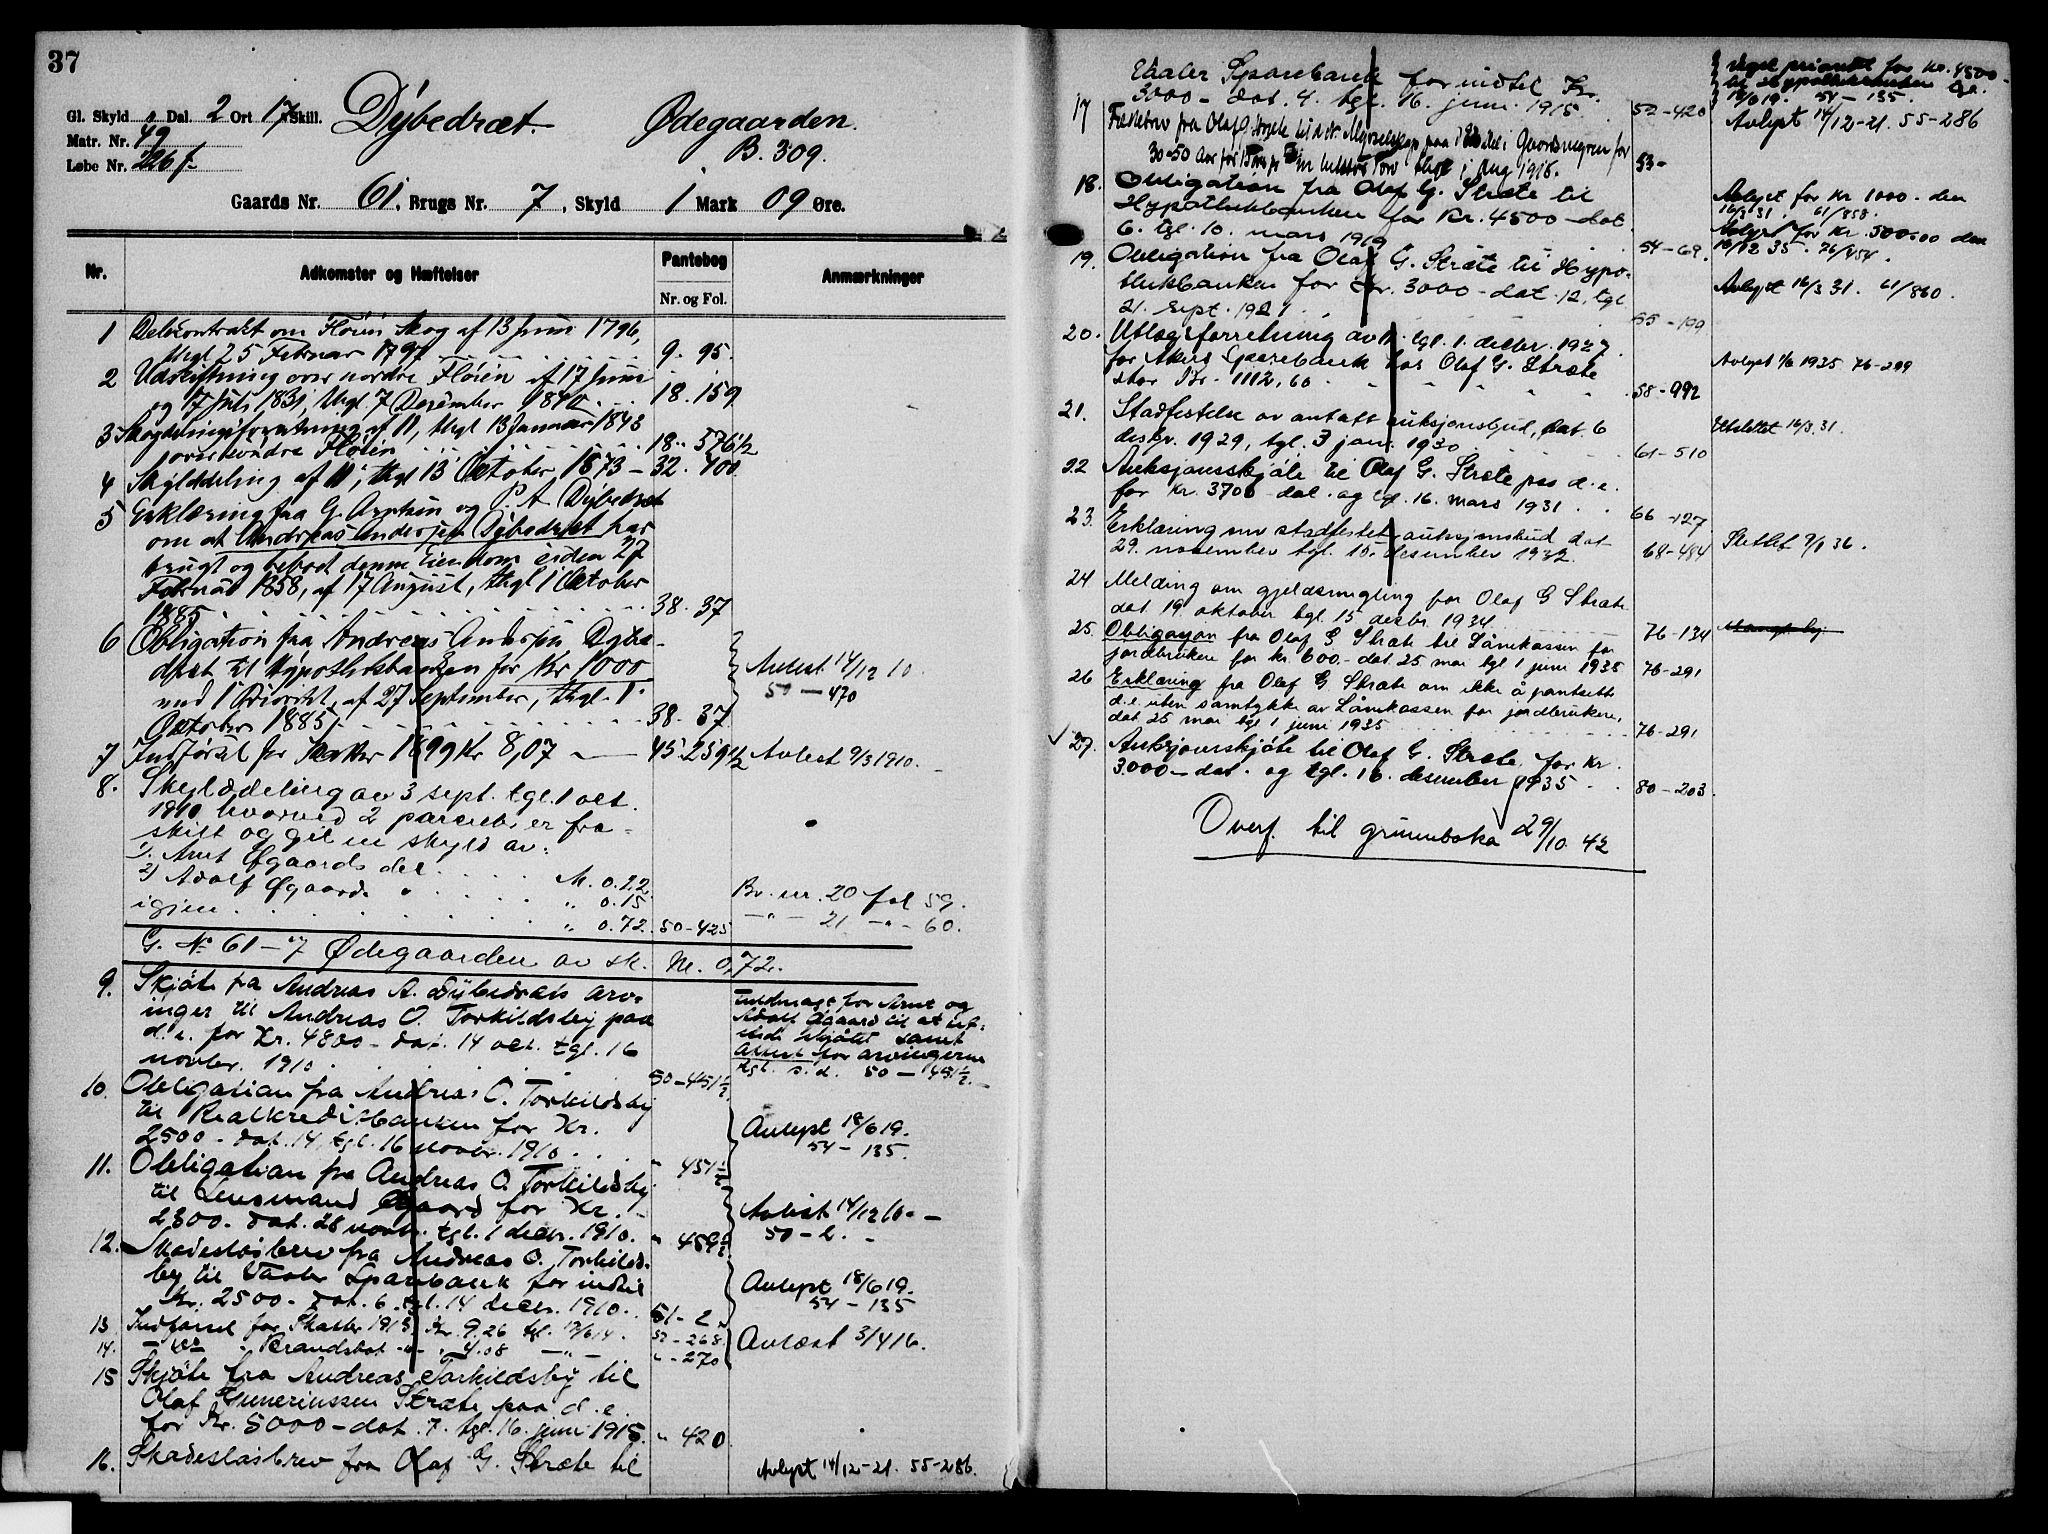 37
Gl. Skyld Dal. 2 Ort 17 Skill.
Dÿbedræt. Ødegaarden.
Matr. Nr. 49
B. 309.
Løbe Nr. 226 f
Gaards Nr. 61, Brugs Nr. 7, Skyld 1 Mark 09 Øre.
Nr. Adkomster og Hæftelser Pantebog Anmærkninger
Nr. og Fol.
1 Delecontrakt om Fløien Skog af 13 Juni 1796,
thgl 25 Februar 1797 9. 95.
2 Udskiftning over nordre Fløien af 17 Juni
og 7 Juli 1831, thgl 7 Dezember 1840 18. 159
3 Skogdelingsforretning af 11, thgl 13 Januar 1843
over nordre Fløien 18. 576½
4 Skylddeling af 11, thgl 13 October 1873 - 32. 400.
5 Erklæring fra G. og P. A. Dÿbedræt
om at Andreas Andersen Dÿbedræt har
brugt og beboet denne Eiendom siden 27
Februar 1858, af 17 August, thgl 1 October
1885 38. 37
6 Obligation fra Andreas Andersen Dybe-
dræt til Hypothekbanken for Kr 1000
med 1 Prioritet, af 27 September, thgl. 1
October 1885 38. 37.
Avlest 14/12 10.
50 - 470
7 Indførsel for Skatter 1899 Kr 8,07 - 45.259½ Avlest 9/3 1910.
8. Skylddeling av 3 sept. tgl. 1 oct.
1910 hvorved 2 parceller er fra-
skilt og git en skyld av:
1). Arnt Øgaards del M. 0.22
2) Adolf Øgaards " " 0.15 Br. nr. 20 fol 59.
igjen " 0.72. 50-425 -"- 21 -"- 60.
G. No 61-7 Ødegaarden av sk. M. 0,72.
9. Skjøte fra Andreas A. Dÿbedræts arv-
inger til Andreas O. Torkildsby paa
d. e. for Kr. 4800 - dat. 14 oct. tgl. 16
novbr. 1910 50-451½
Fuldmagt for Arnt og
Adolf Øgaard til at ut-
stede skjøtet samt
Attest for arvingerne
tgl. s. d. 50 - 451½.
10. Obligation fra Andreas O. Torkildsby
til Realkreditbanken for Kr.
2500 - dat. 14 tgl. 16 novbr. 1910. " 451½
Avlyst 18/6 19.
54 - 135.
11. Obligation fra Andreas O. Torkildsby
til Lensmand Øgaard for Kr.
2300. dat. 28 novbr. tgl. 1 decbr. 1910. " 459½
Avlest 14/12 10. -
50 - 2. -
12. Skadesløsbrev fra Andreas O. Torkilds-
by til Vaaler Sparebank for indtil
Kr. 2500 - dat. 6. tgl. 14 decbr. 1910. 51 - 2
Avlyst 18/6 19.
54 - 135
13 Indførsel for Skatter 1913 Kr. 9.26 tgl. 12/6 14. 52-268
14. - " - " Brandskat - " - " 4.08 - " - " - 270
Avlæst 3/4 16.
15 Skjøte fra Andreas Torkildsby til
Olaf Gunerinssen Stræte paa d. e.
for Kr. 5000 - dat. 7. tgl. 16. juni 1915. " 420
16. Skadesløsbrev fra Olaf G. Stræte til
Avlyst 14/12-21. 55-286.
Vaaler Sparebank for indtil Kr.
3000 - dat. 4. tgl. 16. juni 1915. 52-420
viget prioritet for Kr. 4500 -
til Hypothekbanken
18/6 19. 54 - 135.
Avlyst 14/12-21. 55-286
17 Fæstebrev fra Olaf G. Stræte til det Myrselskap paa 1 del i
30-50 Aar for tgl i Aug 1916. 53-
18. Obligation fra Olaf G. Stræte til
Hypothekbanken for Kr. 4500 - dat.
6. tgl. 10. mars 1919 54-69.
Avlyst for Kr 1000 - den
16/3 31. 61/858.
Avlyst for Kr. 500.00 den
16/12 35. 76/454.
19. Obligation fra Olaf G. Stræte til Hypo-
thekbanken for Kr. 3000 - dat. 12, tgl
21. sept. 1921. 55-199
Avlyst 16/3 31. 61/860.
20. Utlægsforretning av 11. tgl. 1. decbr. 1927
for Akers Sparebank hos Olaf G. Stræte
stor Kr. 1112,60 58-992
Avlyst 1/6 1935 76-299
21. Stadfestelse av antatt auksjonsbud, dat. 6
desbr. 1929, tgl. 3 jan. 1930 61-510
Utslettet 16/3. 31.
22 Auksjonsskjøte til Olaf G. Stræte paa d. e.
for Kr. 3700 - dat. og tgl. 16. mars 1931 66-127
23. Erklæring om stadfestet auksjonsbud dat
29. november tgl. 10. desember 1932. 68-484
Slettet 9/1 36.
24 Melding om gjeldsmegling for Olaf G Stræte
dat 19 oktober tgl 15 desbr. 1934 76-134
25. Obligasjon fra Olaf G Stræte til Lånekassen for
jordbrukere for kr. 600.- dat 25 mai tgl 1 juni 1935 76-291
26 Erklæring fra Olaf G Stræte om ikke å pantsette
d. e. uten samtykke av Lånekassen for jordbrukere,
dat 25 mai tgl 1 juni 1935 76-291
27. Auksjonsskjøte til Olaf G. Stræte for kr.
3000 - dat. og tgl. 16. desember 1935 80-203.
Overf. til grunnboka 29/10 42